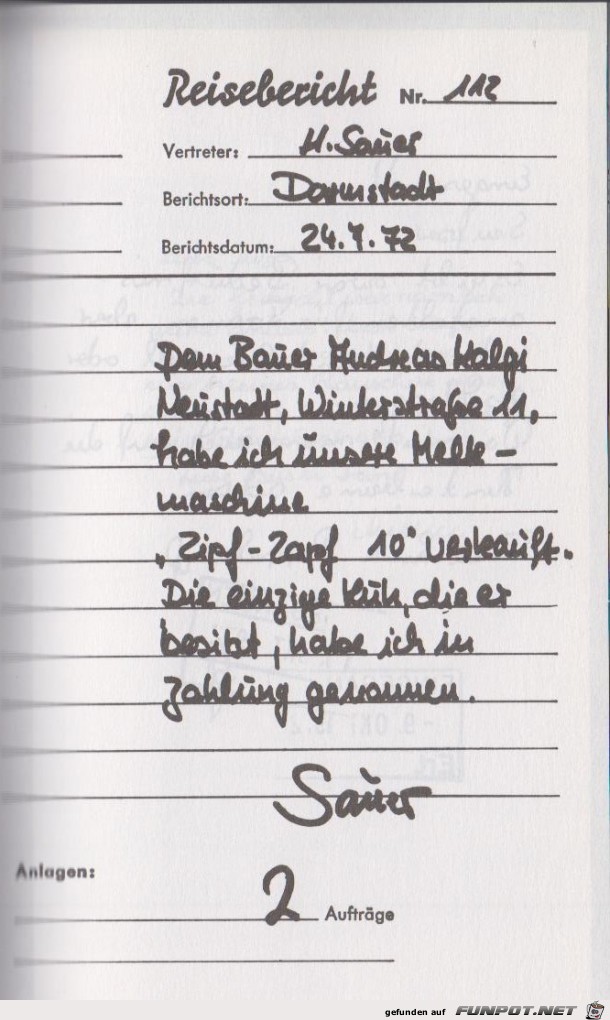 Reisebericht Nr. 112
Vertreter: H. Sauer
Berichtsort: Darmstadt
Berichtsdatum: 24.7.72
Dem Bauer Andreas Walgi
Neustadt, Winterstraße 11,
habe ich unsere Melk-
maschine
"Zipf-Zapf 10" verkauft.
Die einzige Kuh, die er
besitzt, habe ich in
Zahlung genommen.
Sauer
Anlagen:
2 Aufträge
gefunden auf FUNPOT.NET